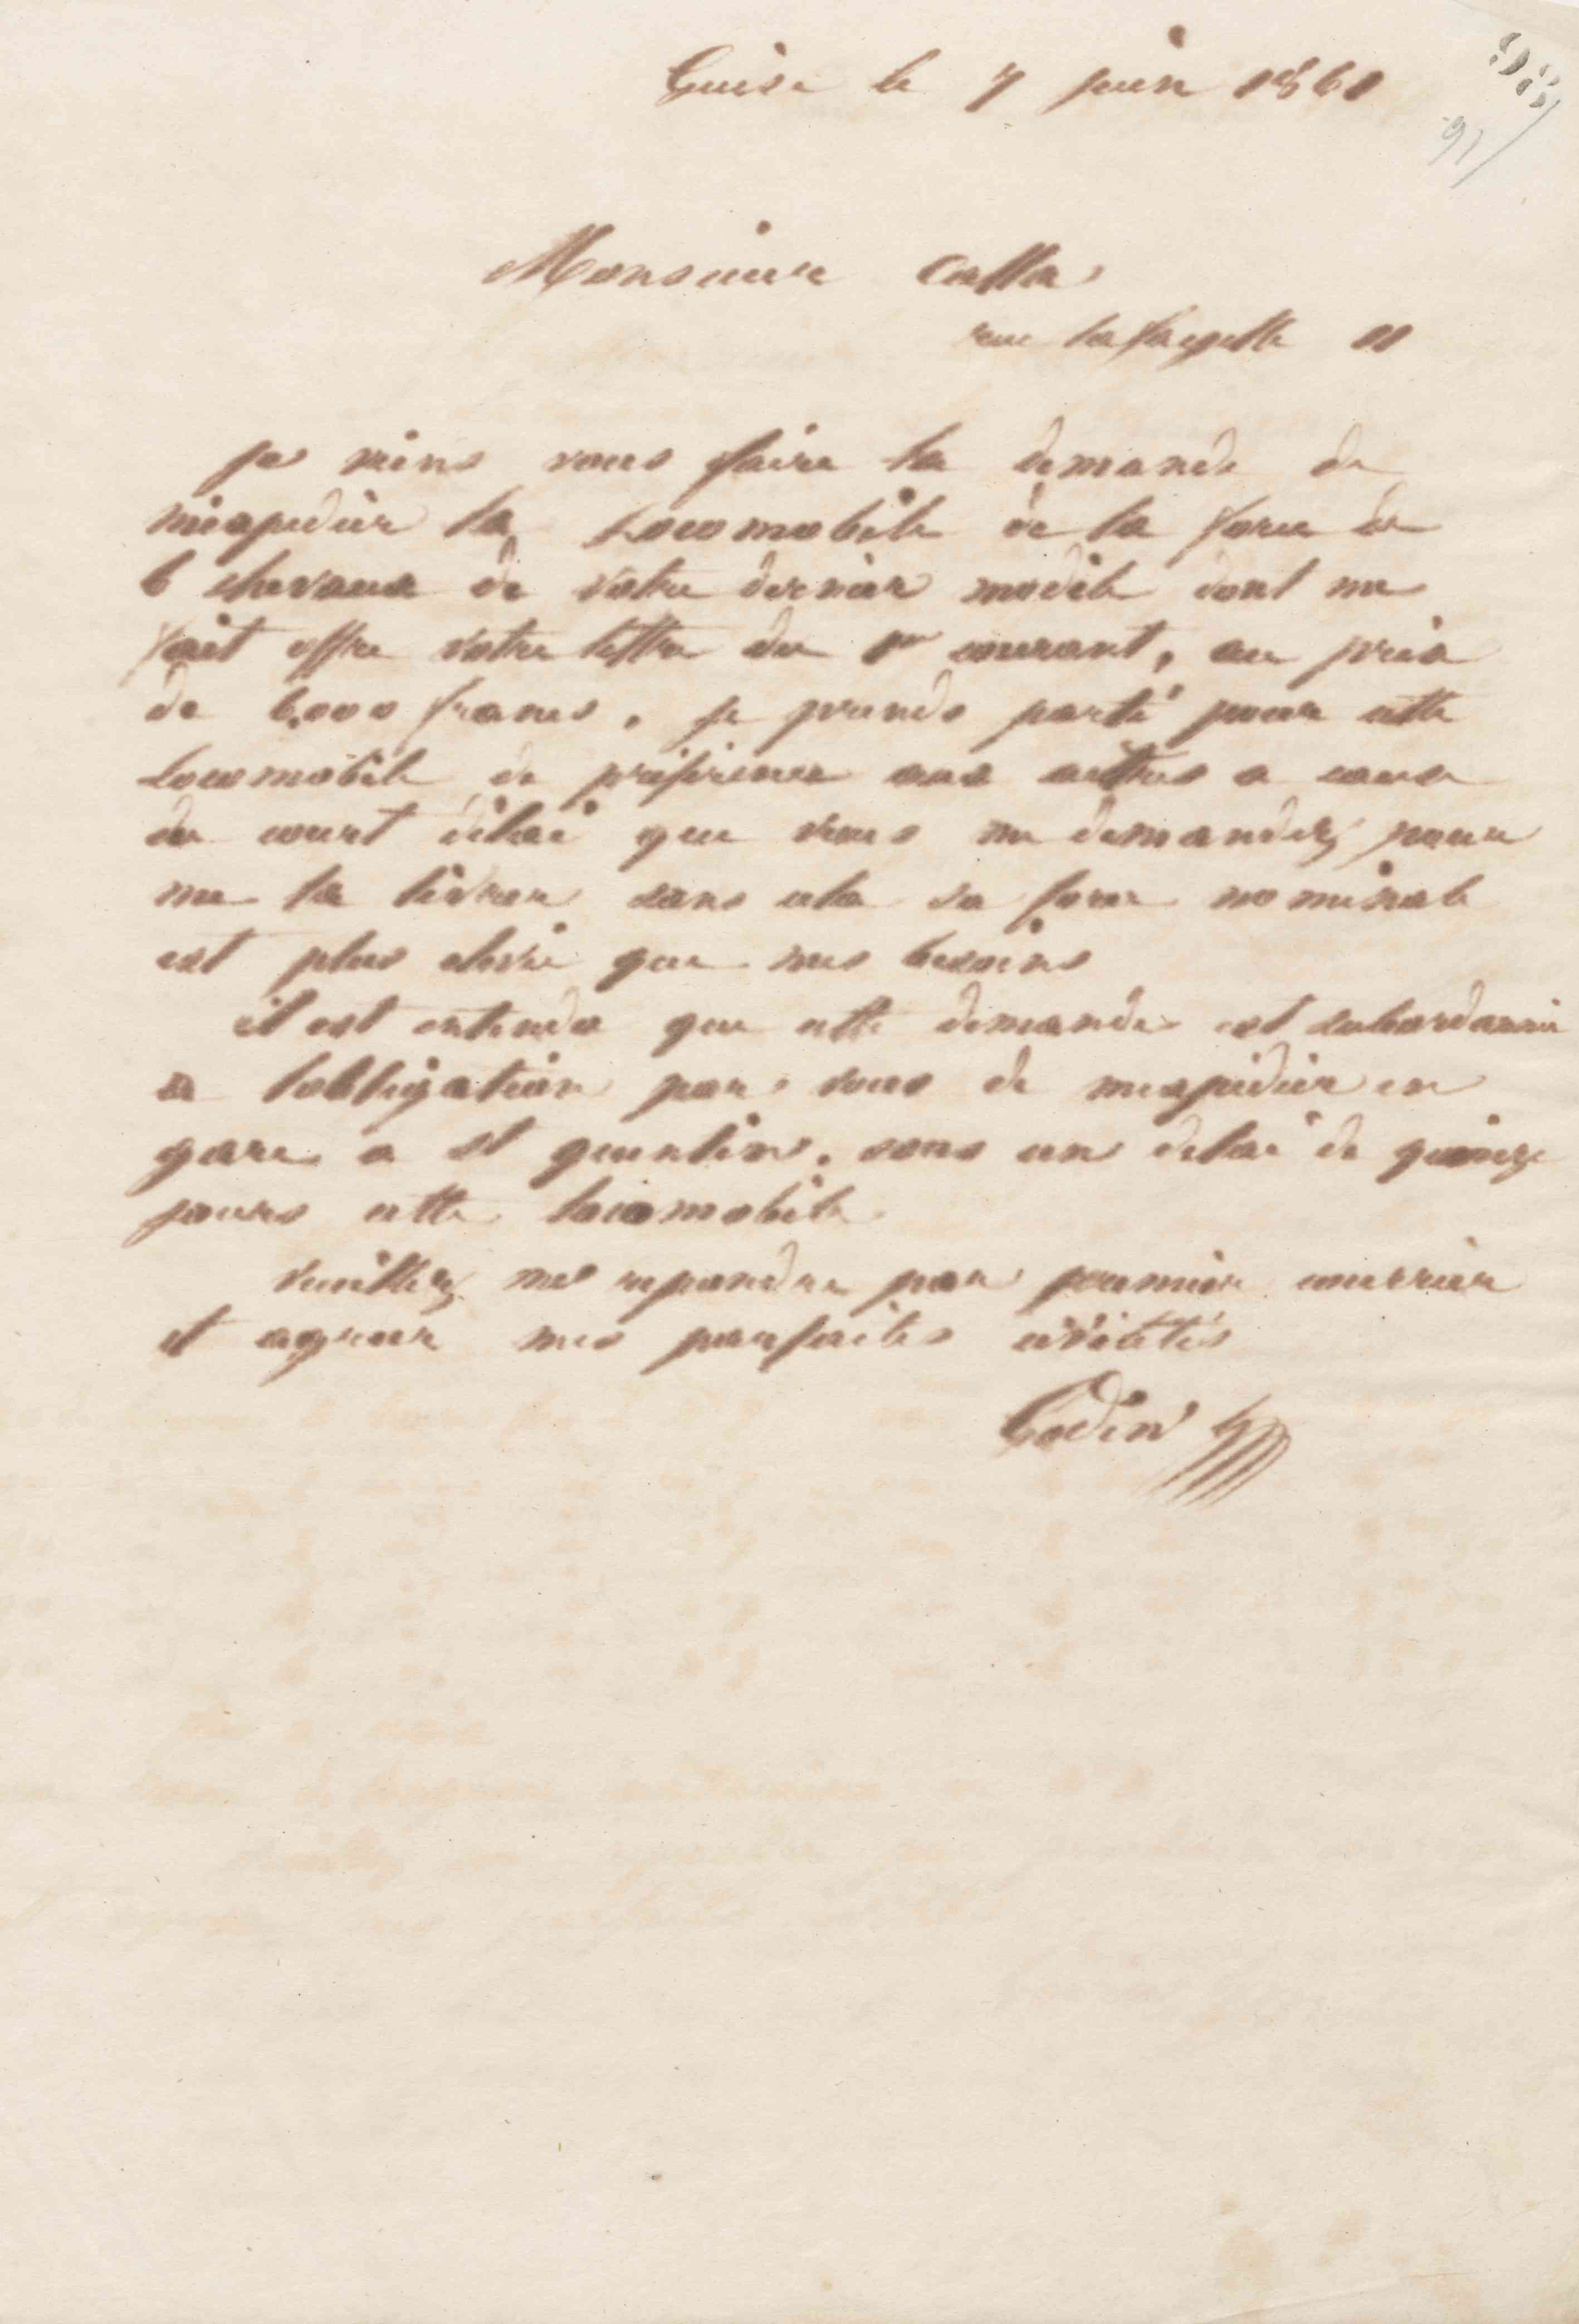 Guise le 7 juin 1861
91
Monsieur Calla
rue Lafayette 11
je viens vous faire la demande de
m'expédier la Locomobile de la force de
6 chevaux de votre dernier modèle dont me
fait offre votre lettre du 1er courant, au prix
de 6,000 francs. je prends parti pour cette
Locomobile de préférence aux autres a cause
du court délai que vous me demandez pour
me la livrer sans cela sa force nominale
est plus élevée que mes besoins
il est entendu que cette demande est subordonnée
a lobligation par vous de mexpédier en
gare a st quentin, sous un delai de quinze
jours cette locomobile
veuillez me repondre par premier courrier
et agreer mes parfaites civilités
Godin